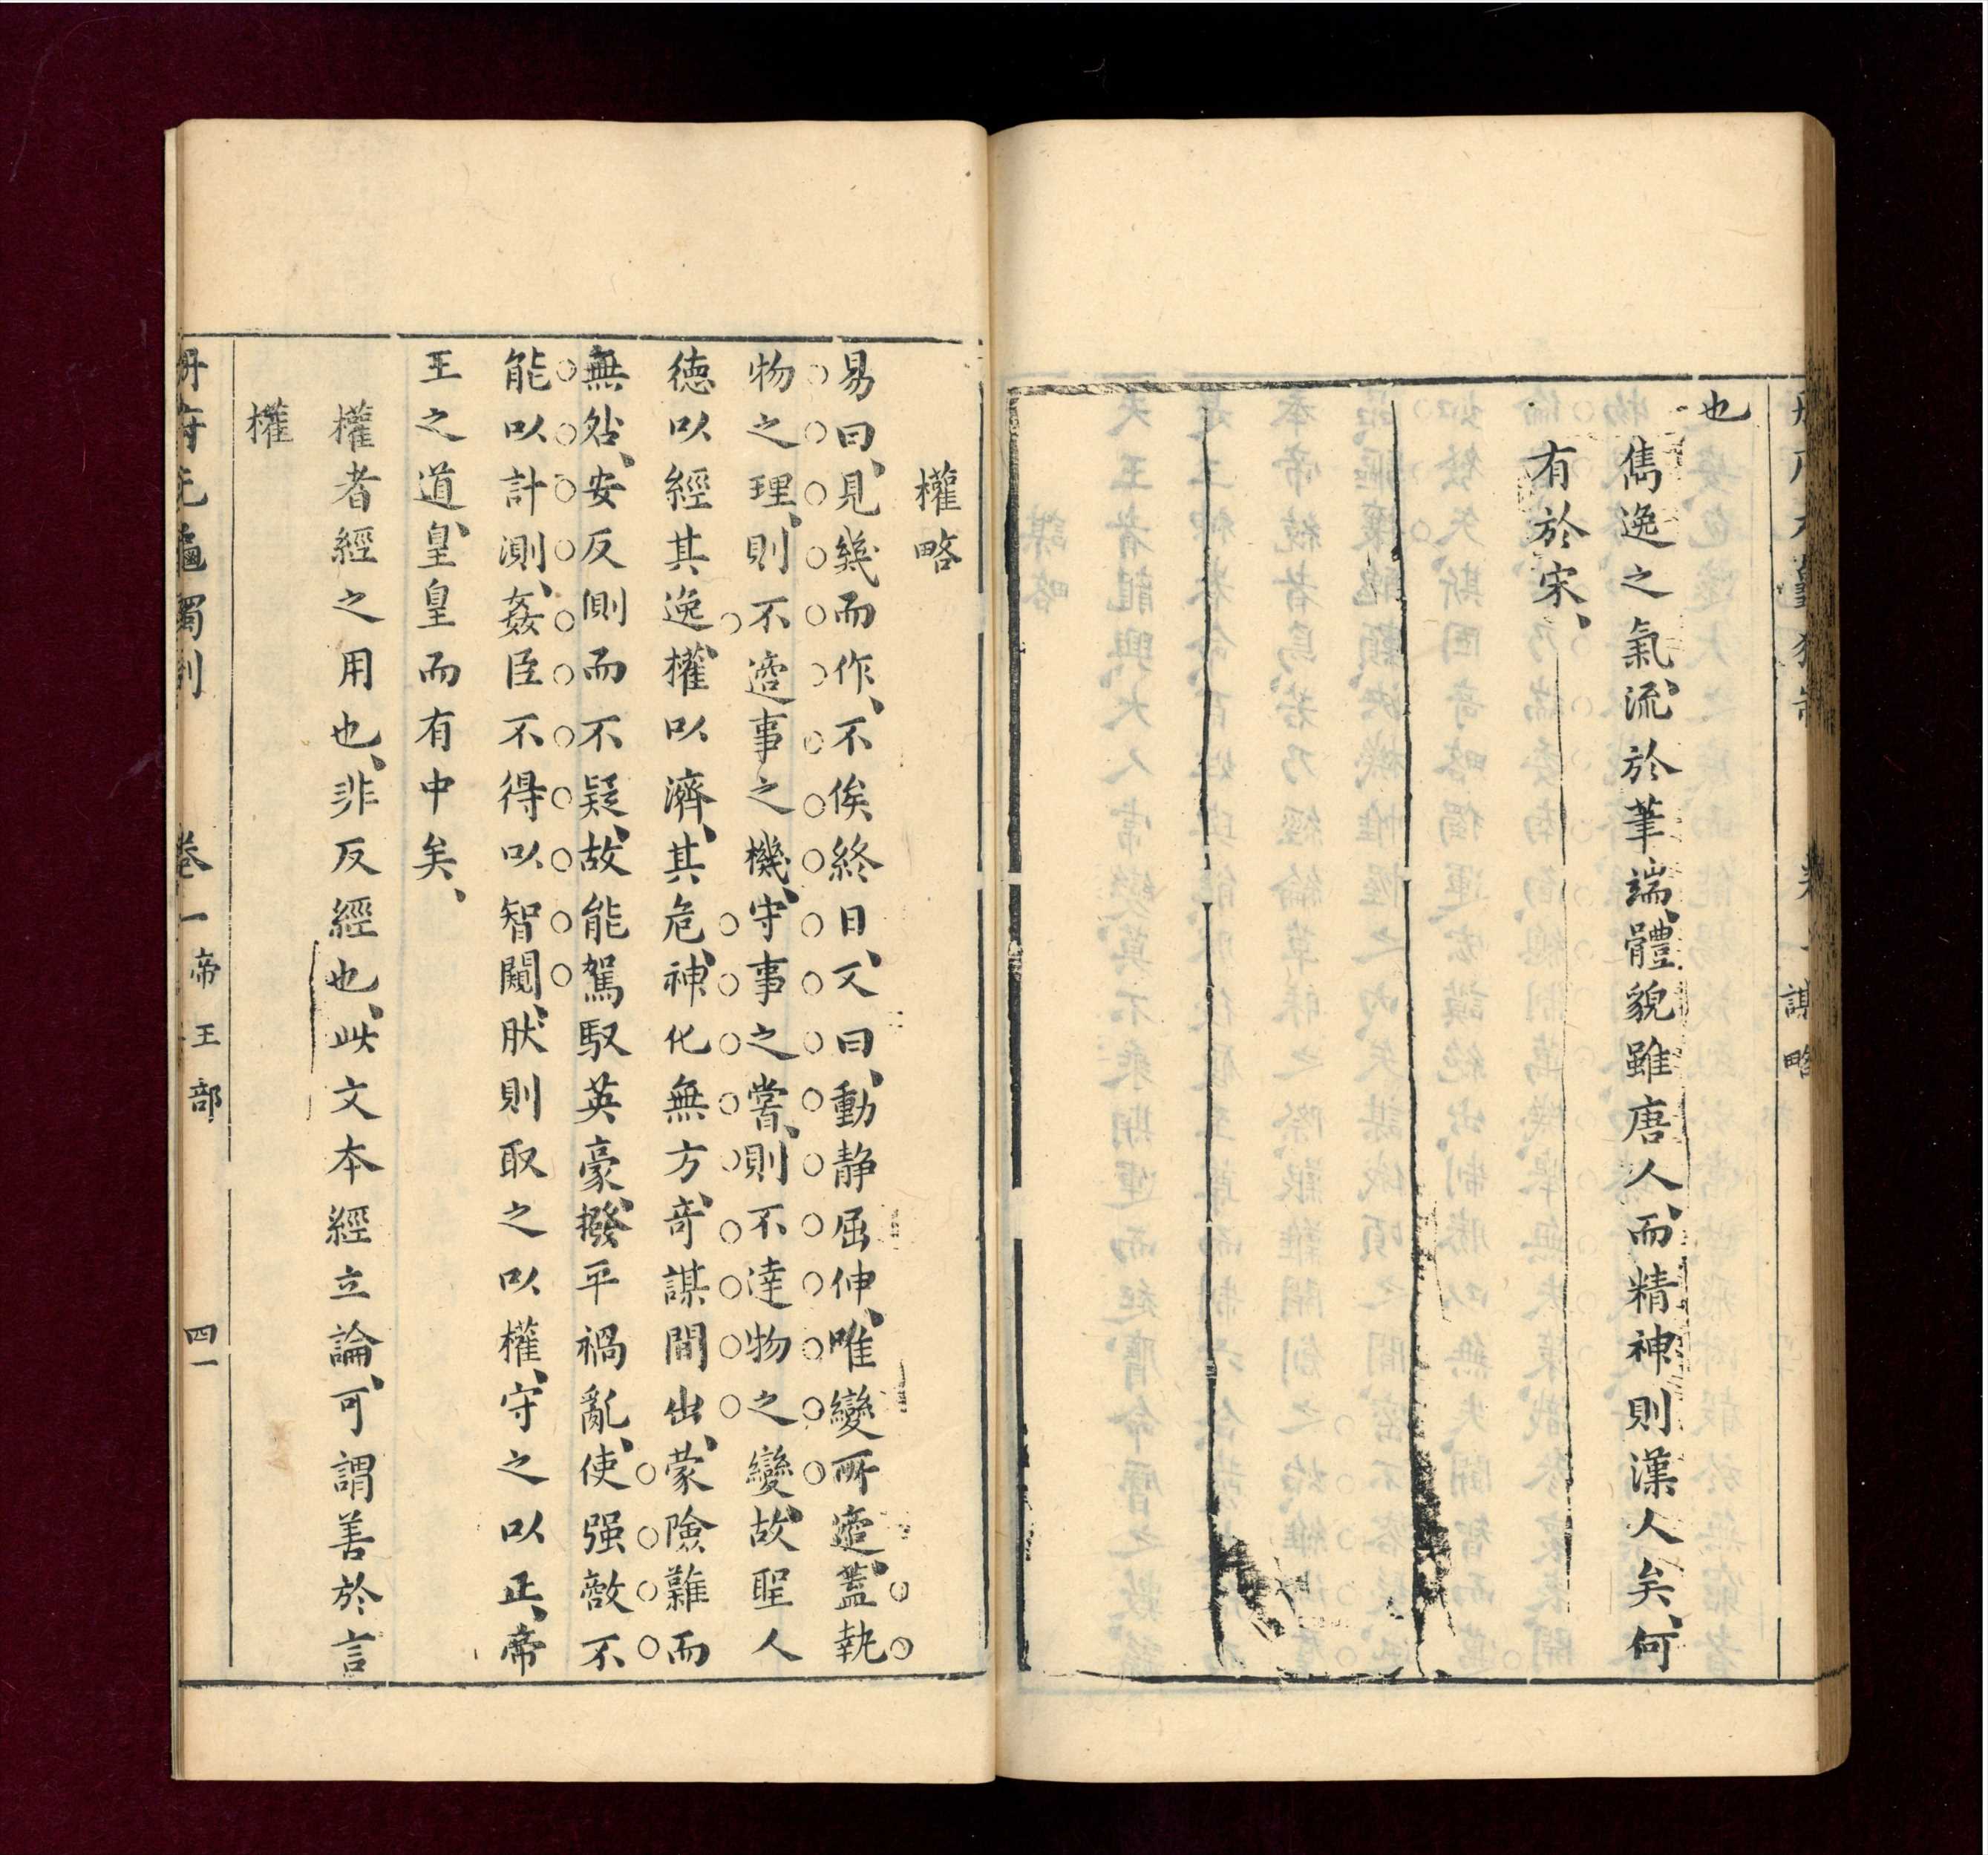 也
雋逸之氣、流於筆端、體貌雖唐人、而精神則漢人矣、何
有於宋、
權略
易曰、見幾而作、不俟終日、又曰、動静屈伸、唯變所適、蓋執
物之理、則不適事之機、守事之嘗、則不達物之變、故聖人
德以經其逸、權以濟其危、神化無方、奇謀間出、蒙險難而
無咎、安反側而不疑、故能駕馭英豪、撥平禍亂、使强敵不
能以計測、姦臣不得以智闚、肰則取之以權、守之以正、帝
王之道、皇皇而有中矣、
權者經之用也、非反經也、此文本經立論、可謂善於言
權
冊府元龜獨制
卷一
帝王部
四一